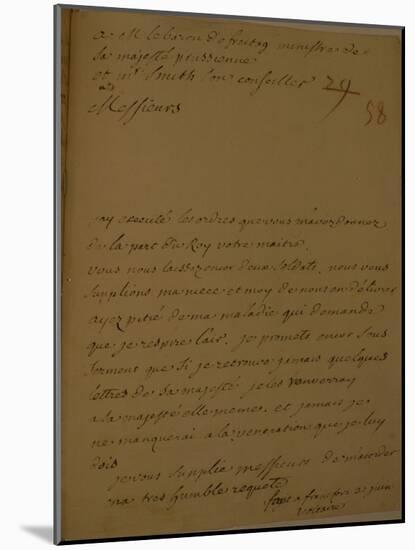 a M le baron de freitag ministre de
sa majesté prussienne
et mr Smith son conseiller 29
58
Messieurs
jay executé les ordres que vous mavez donnez
de la part du Roy votre maitre.
vous nous laissez encor deux soldats, nous vous
supplions ma niece et moy de nous en délivrer
ayez pitié de ma maladie qui demande
que je respire lair. je promets encor sous
serment que si je retrouve jamais quelques
lettres de sa majesté je les renverray
a sa majesté elle meme. et jamais je
ne manquerai a la veneration que je luy
dois
je vous supplie messieurs de m'acorder
ma tres humble requete
a francfort juin
voltaire